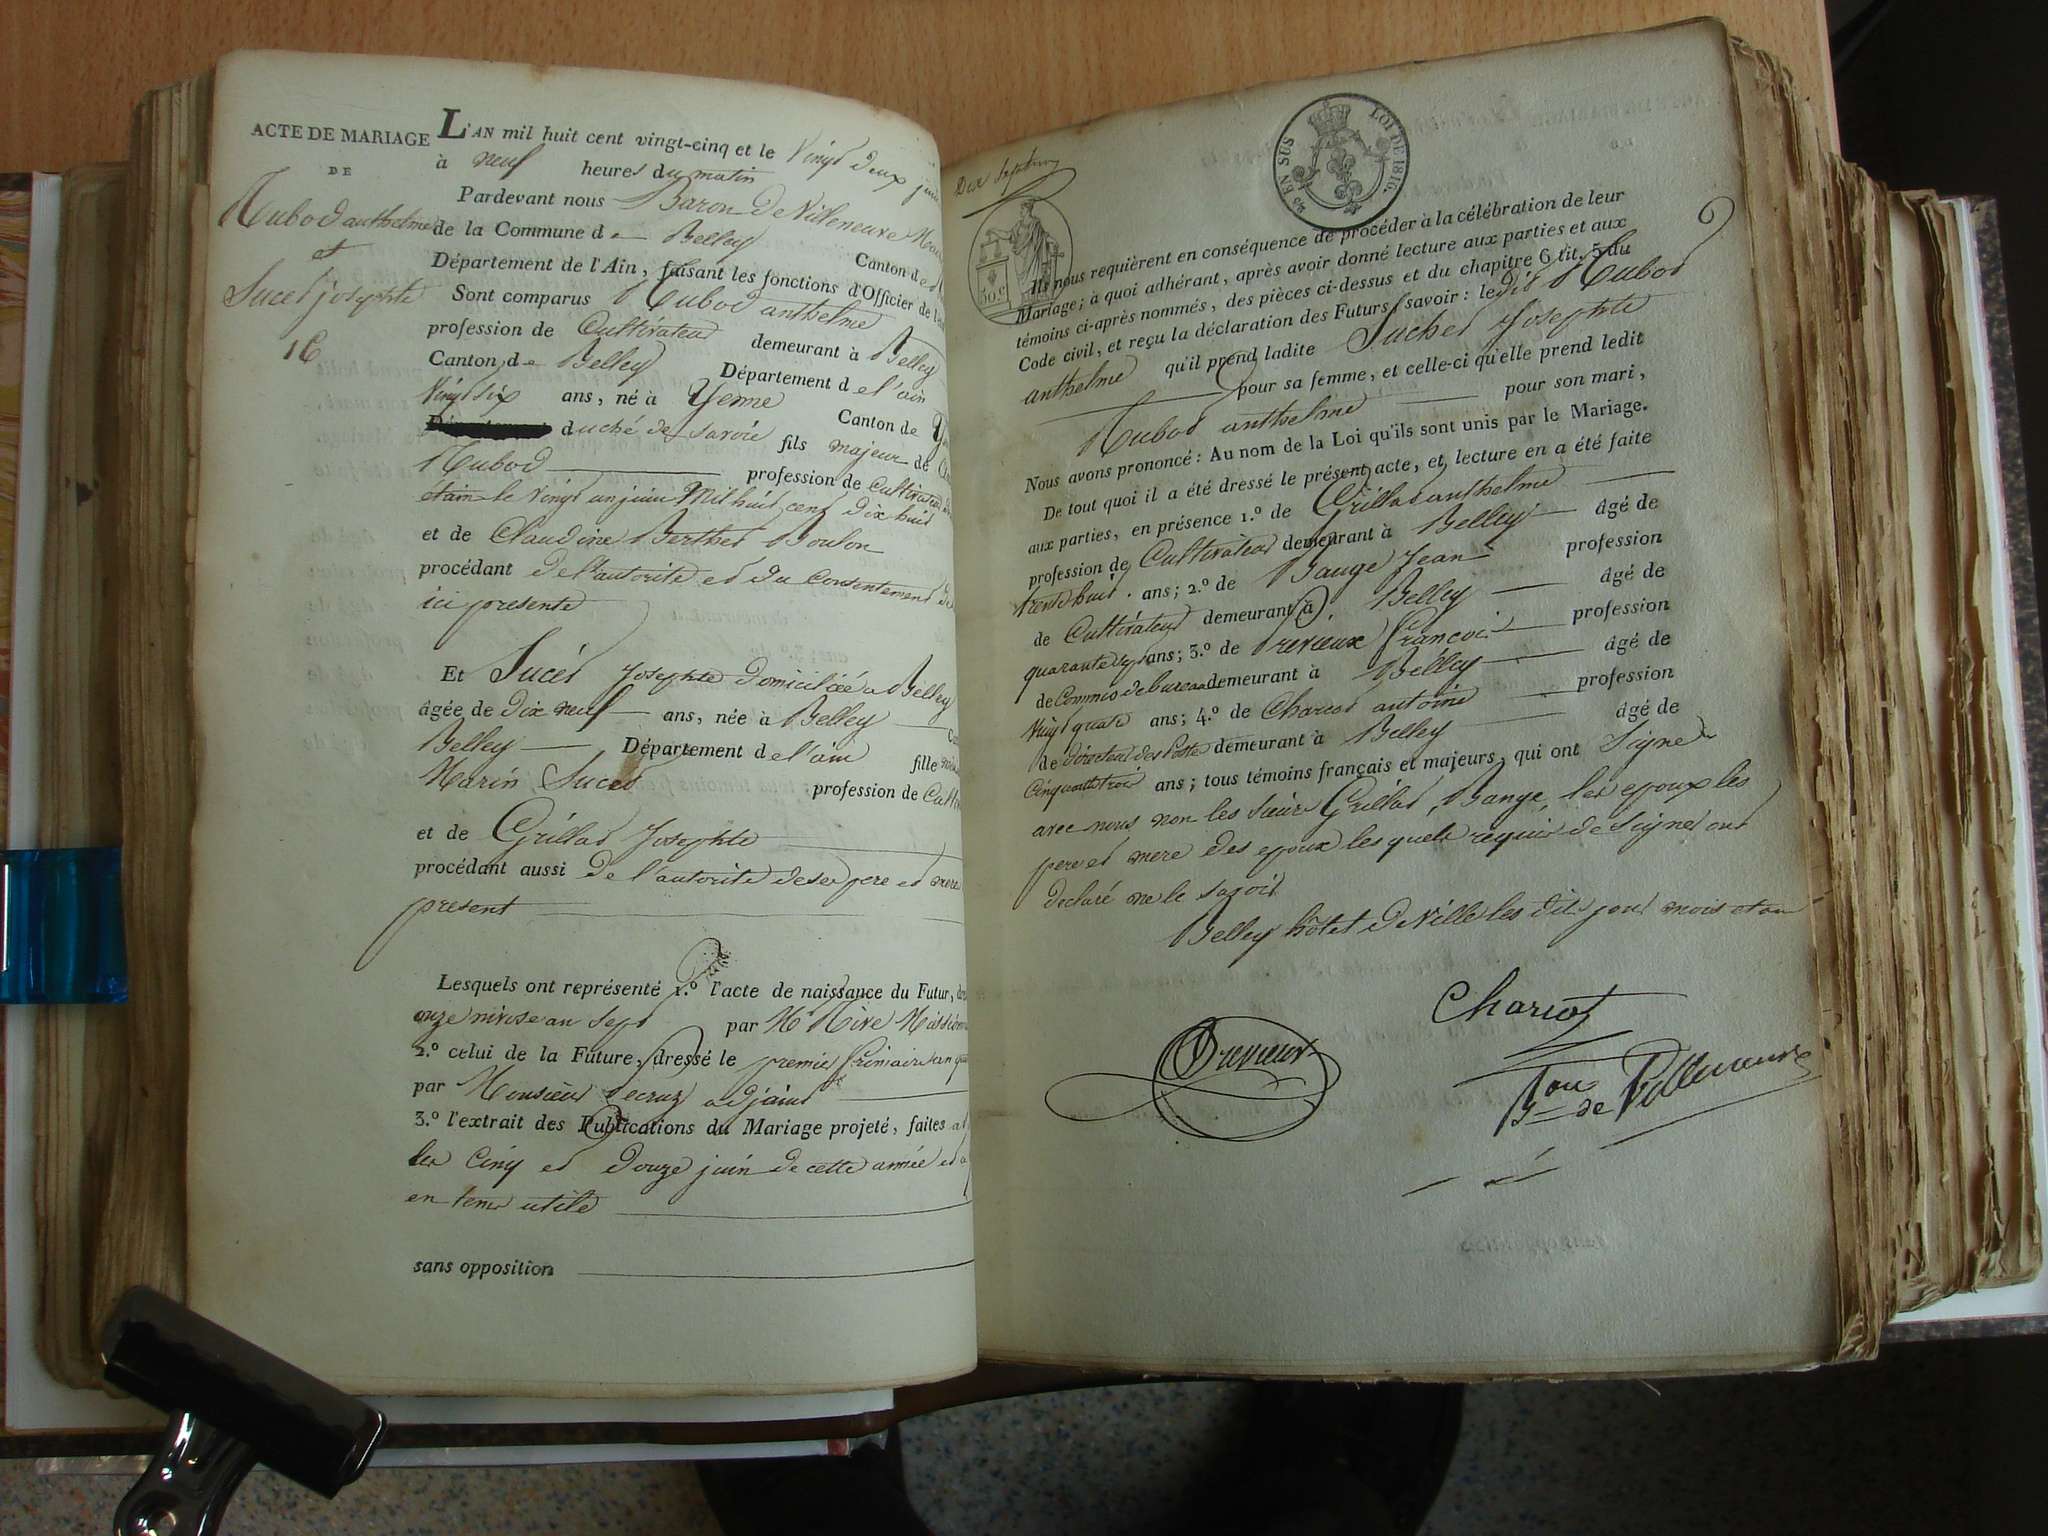 ACTE DE MARIAGE
DE
Rubod anthelme
et
Suces josephte
16
L'AN mil huit cent vingt-cinq et le vingt deux juin
à neuf heures du matin
Pardevant nous Baron de Villeneuve
de la Commune de Belley Canton de
Département de l'Ain, faisant les fonctions d'Officier de
Sont comparus Rubod anthelme
profession de Cultivateur demeurant à Belley
Canton de Belley Département de l'ain
vingt six ans, né à Yenne Canton de
duché de savoie fils majeur de
Rubod profession de Cultivateur
le vingt un juin mil huit cent dix huit
et de Claudine Berthet Boulon
procédant de l'autorité et du Consentement de
ici presente
Et Suces Josephte domiciliée a Belley
âgée de dix neuf ans, née à Belley
Belley Département de l'ain fille
Marin Suces profession de
et de Grillat Josephte
procédant aussi de l'autorité de ses pere et mere
present
Lesquels ont représenté 1.º l'acte de naissance du Futur,
onze nivose an sept par Mr Rive
2.º celui de la Future, dressé le premier frimaire an
par Monsieur Decruz adjoint
3.º l'extrait des Publications du Mariage projeté, faites
les cinq et douze juin de cette année et
en tems utile
sans opposition
Dix Septieme
EN SUS
LOI DE 1816.
50.c
Ils nous requièrent en conséquence de procéder à la célébration de leur
Mariage; à quoi adhérant, après avoir donné lecture aux parties et aux
témoins ci-après nommés, des pièces ci-dessus et du chapitre 6 tit. 5 du
Code civil, et reçu la déclaration des Futurs, savoir: ledit Rubod
anthelme qu'il prend ladite Suches Josephte
pour sa femme, et celle-ci qu'elle prend ledit
Rubod anthelme pour son mari,
Nous avons prononcé: Au nom de la Loi qu'ils sont unis par le Mariage.
De tout quoi il a été dressé le présent acte, et lecture en a été faite
aux parties, en présence 1.º de Grillat anthelme
profession de Cultivateur demeurant à Belley âgé de
trente huit ans; 2.º de Bauge Jean profession
de Cultivateur demeurant à Belley âgé de
quarante ans; 3.º de Previeux françois profession
de Commis de bureau demeurant à Belley âgé de
vingt quatre ans; 4.º de Charcot antoine profession
de directeur des Postes demeurant à Belley âgé de
cinquante trois ans; tous témoins français et majeurs, qui ont Signé
avec nous non les sieurs Grillat, Bauge, les epoux les
pere et mere des epoux les quels requis de Signer ont
declaré ne le savoir
Belley hôtel de Ville les dits jour mois et an
Charcot
Previeux
Bon de Villeneuve